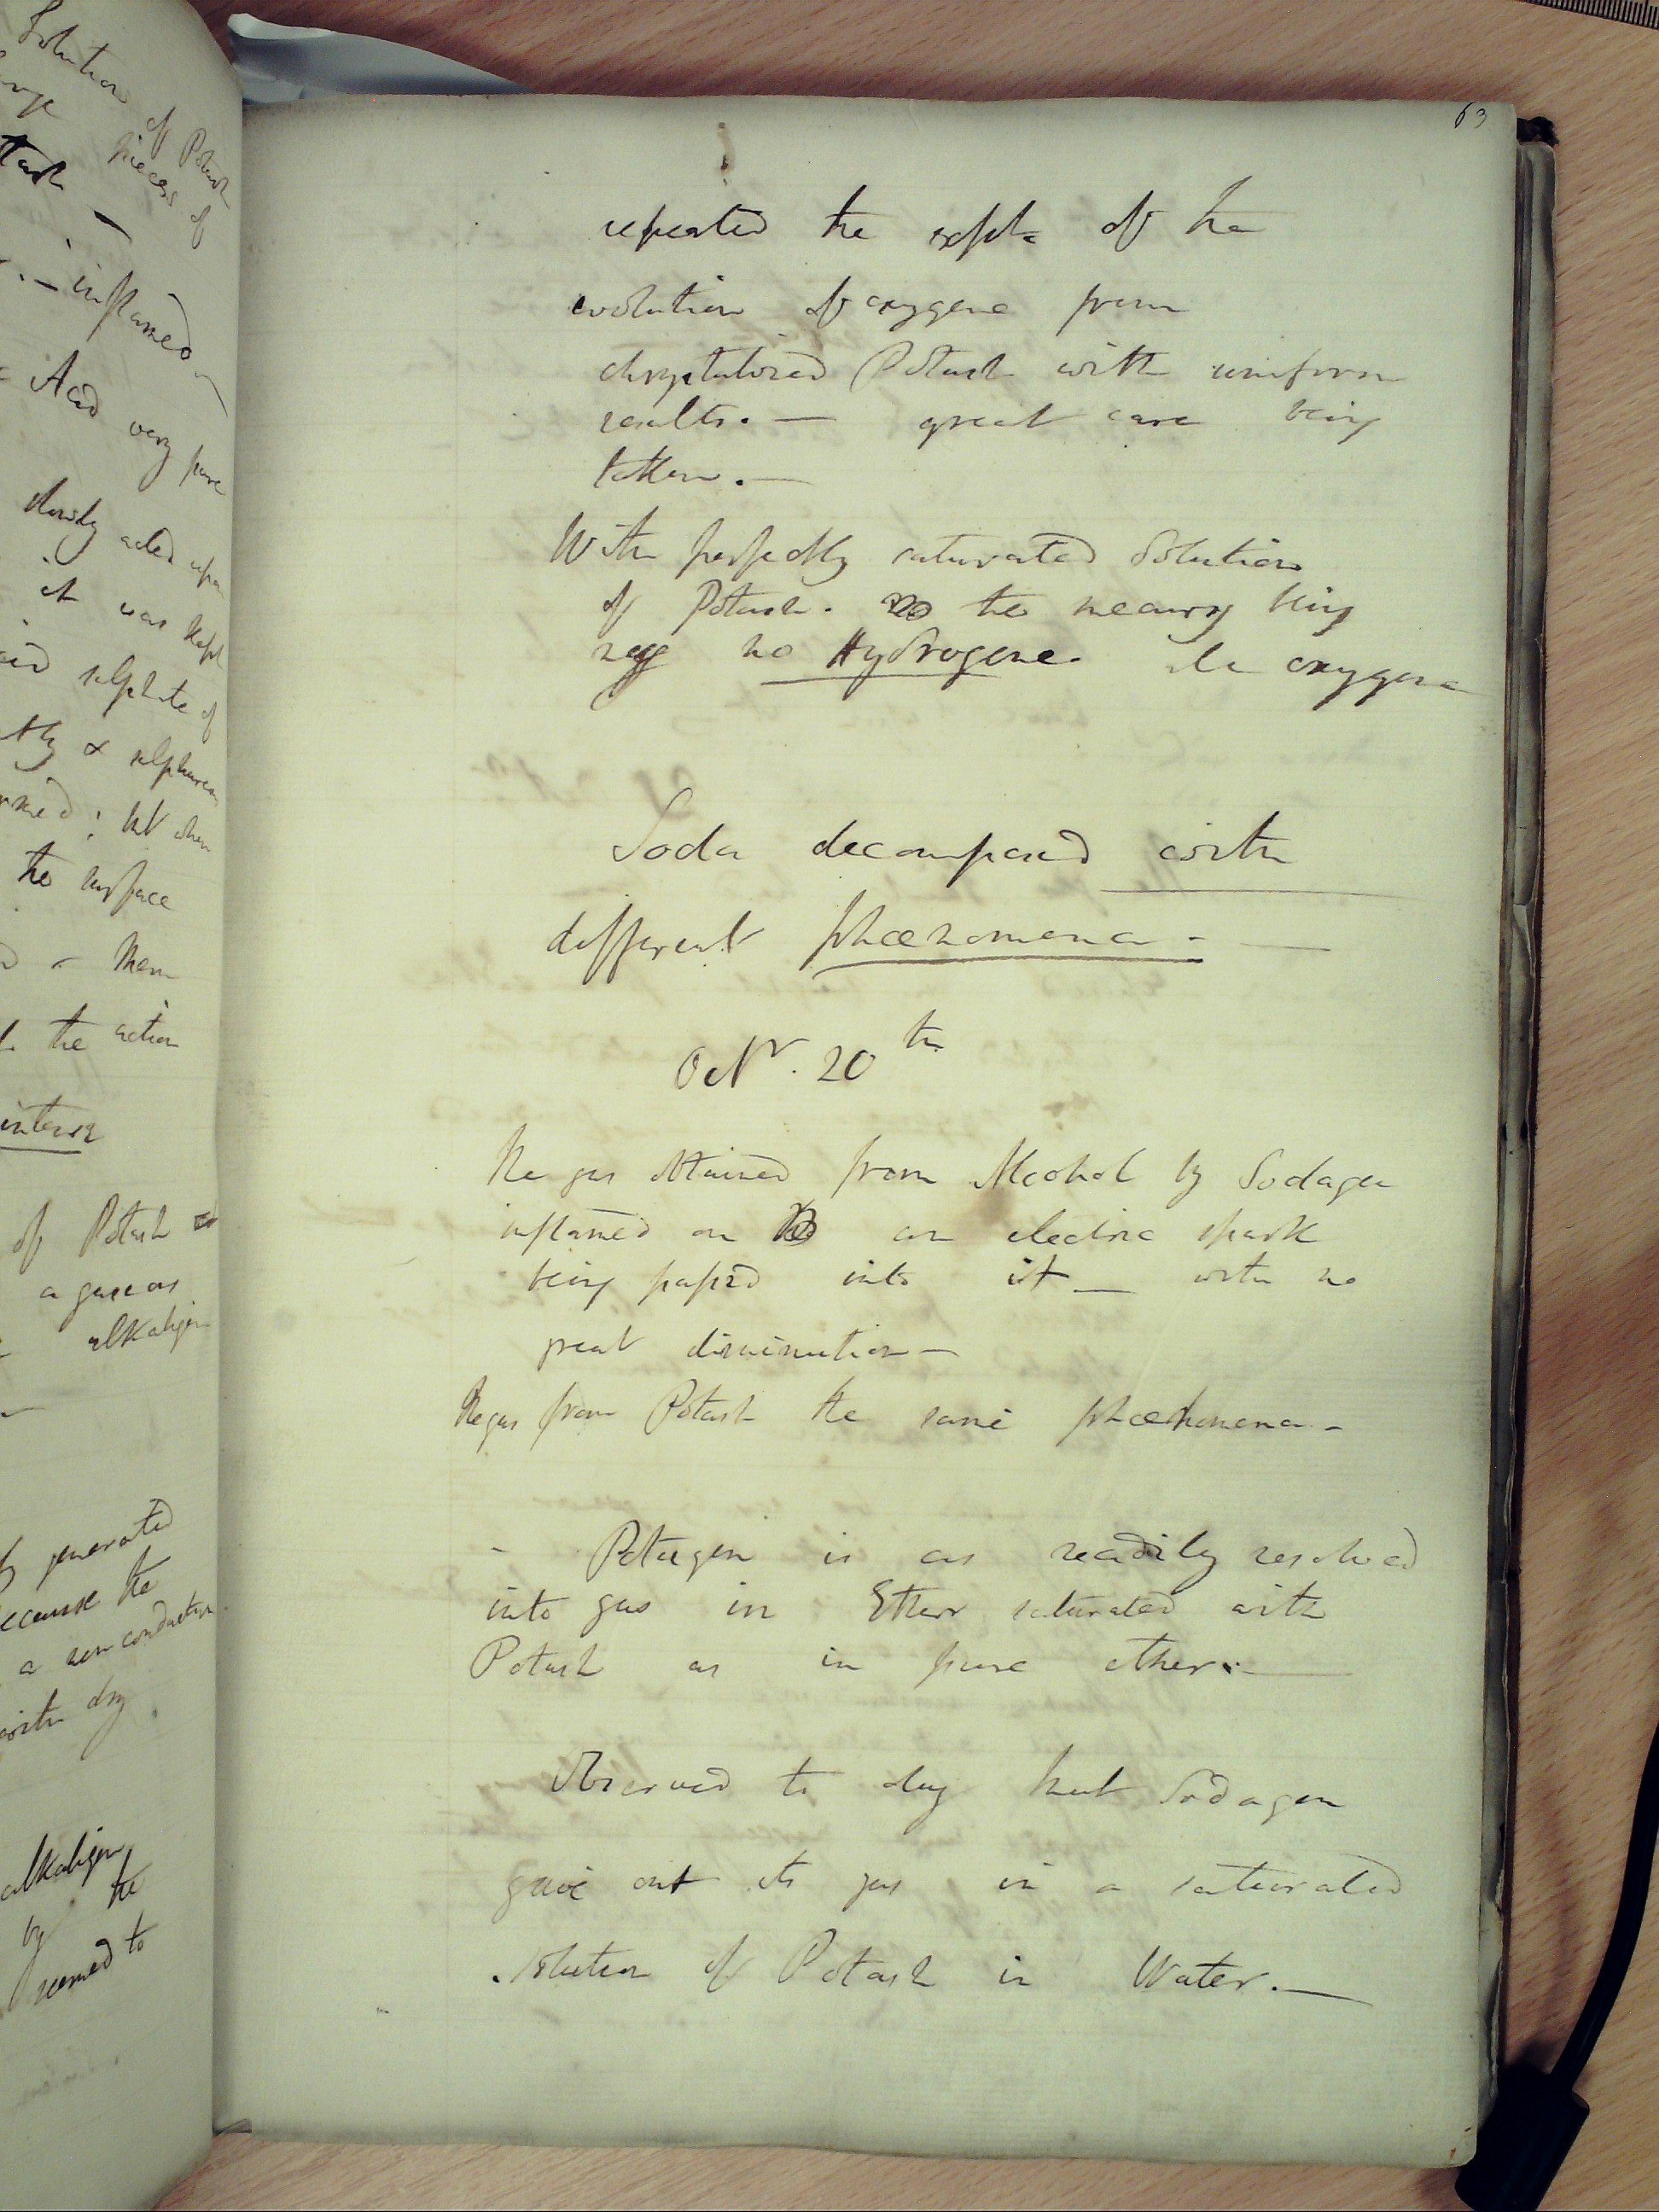 Solution of Potash
pieces of
inflamed
Acid very pure
slowly acted upon
it was kept
sulphite of
& sulphureous
: but when
the surface
- Them
the action
intense
of Potash
a gaseous
alkaligen
generated
because the
a non conductor
with dry
alkaligen
by the
seemed to
63
repeated the expts of the
evolution of oxygene from
chrystalized Potash with uniform
results. — great care being
taken. —
With perfectly saturated Solution
of Potash. the mercury being
neg no Hydrogene. oxygene
Soda decomposed with
different phænomena - —
Octr. 20th
The gas obtained from Alcohol by Sodagen
inflamed on an electric spark
being passed into it — with no
great diminution —
The gas from Potash the same phænomena -
- Potagen is as readily resolved
into gas in Ether saturated with
Potash as in pure ether. —
Observed to day that Sodagen
gave out its gas in a saturated
solution of Potash in Water. —